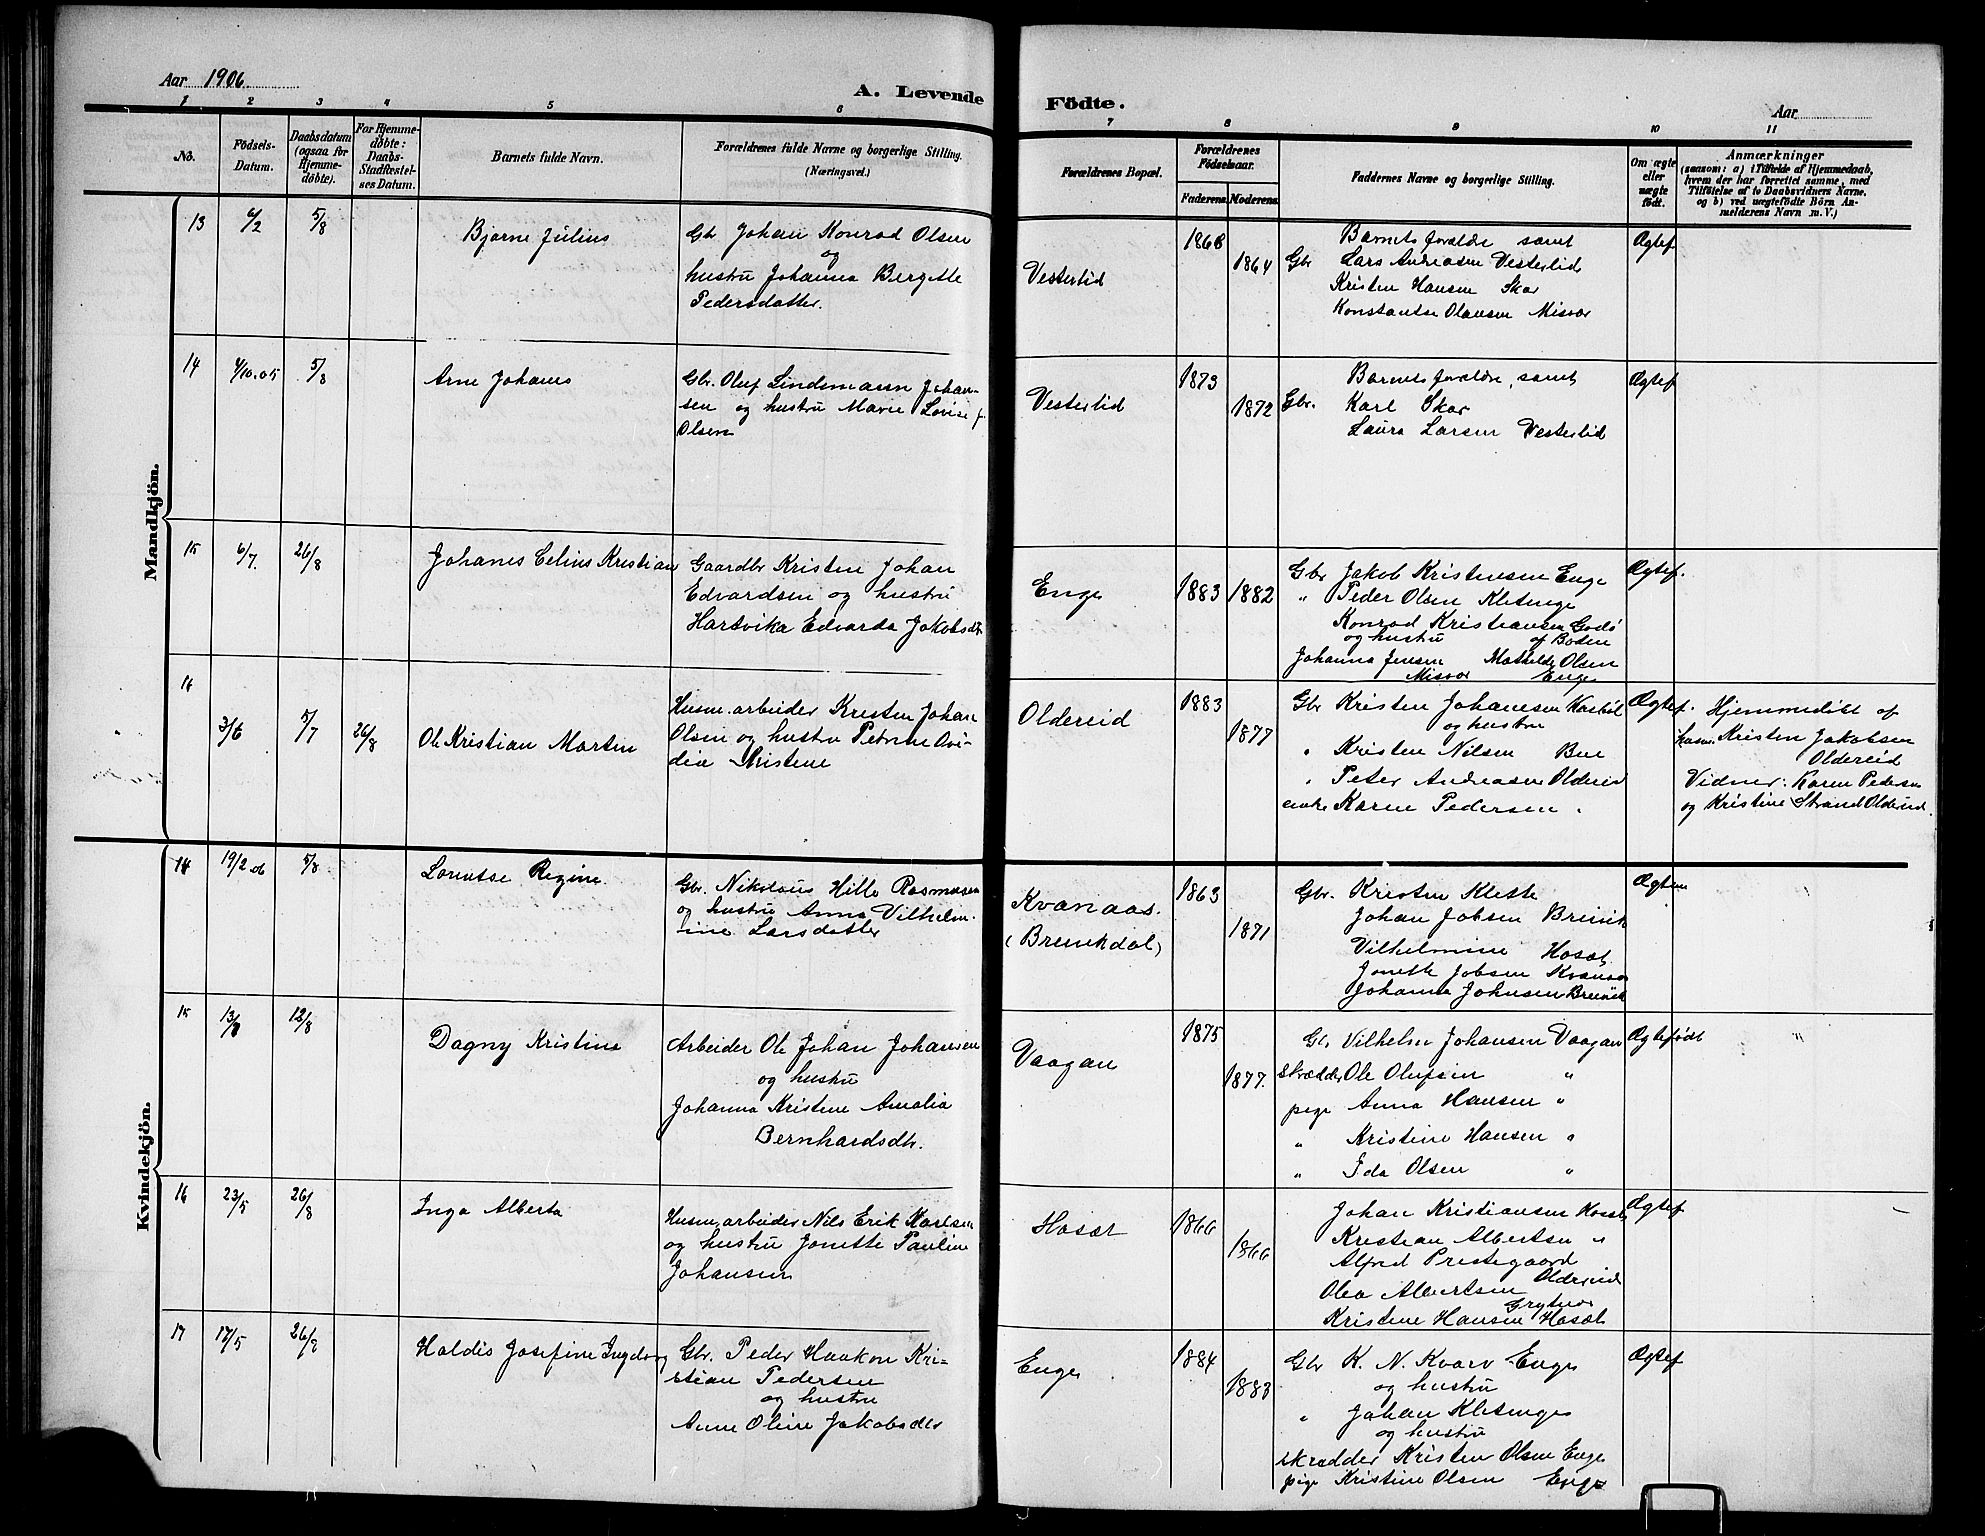 Aar 1906.
A. Levende Födte.
Aar
1 2 3 4 5 6 7 8 9 10 11
No.
Födsels-Datum.
Daabsdatum (ogsaa for Hjemme-döbte).
For Hjemme-döbte: Daabs-Stadfæstel-ses Datum.
Barnets fulde Navn.
Forældrenes fulde Navne og borgerlige Stilling.
(Næringsvei.)
Forældrenes Bopæl.
Forældrenes Födselsaar.
Faderens. Moderens.
Faddernes Navne og borgerlige Stilling.
Om ægte eller uægte födt.
Anmærkninger
(saasom: a) i Tilfælde af Hjemmedaab,
hvem der har forrettet samme, med
Tilföielse af to Daabsvidners Navne.
og b) ved uægtefödte Börn An-
melderens Navn m. V.)
Mandkjön.
13 6/2 5/8 Bjarne Julius
Gbr Johan Konrad Olsen
og
hustru Johanna Bergitte
Pedersdatter.
Vesterlid
1868 1864
Barnets forældre samt
Gbr Lars Andreasen Vesterlid
Kristen Hansen Skar
Konstantse Olausen Misvær
Ægtef
14 4/10.05 5/8 Arne Johans
Gbr. Oluf Lindemann Johan-
sen og hustru Marie Lovise f.
Olsen
Vesterlid
1873 1872
Barnets forældre, samt
Gbr. Karl Skar
Laura Larsen Vesterlid
Ægtef
15 6/7. 26/8 Johanes Celius Kristian
Gaardbr Kristen Johan
Edvardsen og hustru
Hartvika Edvarda Jakobsdtr
Enge
1883 1882
Gbr Jakob Kristensen Enge
" Peder Olsen Kletenge
Konrad Kristiansen Godö
og hustru af Bodin
Johanna Jensen Mathilde Olsen
Misvær Enge
Ægtef.
16 3/6 5/7 26/8 Ole Kristian Martin
Husm. arbeider Kristen Johan
Olsen og hustru Petrine Ovi-
dia Kristine
Oldereid
1883 1877
Gbr Kristen Johansen
og hustru
" Kristen Nilsen Bue
" Peter Andreasen Oldereid
enke Karen Pedersen "
Ægtef.
Hjemmedöbt af
husm. Kristen Jakobsen
Oldereid
Vidner: Karen Pedersen
og Kristine Strand Oldereid
Kvindekjön.
14 19/2 06 5/8 Lorntse Regine
Gbr. Nikolaus Hille Rasmusen
og hustru Anna Vilhelm-
ine Larsdatter
Kvanaas.
(Breivikdal)
1863 1871
Gbr. Kristen Klette
Johan Jobsen Breivik
Vilhelmine Hosæt
Jonette Jobsen
Johanna Johnsen Breivik
15 12/8 Dagny Kristine
Arbeider Ole Johan Johansen
og hustru
Johanna Kristine Amalia
Bernhardsdtr.
Vaagan
1875 1877.
Gbr Vilhelm Johansen Vaagan
skrædder Ole Olufsen "
pige Anna Hansen "
" Kristine Hansen "
" Ida Olsen "
Ægtefödt
16 23/5 26/8 Inga Alberta
Husm. arbeider Nils Erik Karlsen
og hustru Jonette Pauline
Johansen
Hosæt
1866 1866
Johan Kristiansen Hosæt
Kristian Albertsen "
Alfred Prestegaard
Oldereid
Olea Albertsen
Kristine Hansen Hosæt
Ægtef
17 17/5 26/8 Haldis Josefine Ingeborg
Gbr. Peder Haakon Kri-
stian Pedersen
og hustru
Anne Oline Jakobsdtr
Enge
1884 1883
Gbr K. N. Kvarv Enge
og hustru
" Johan Kletenge
og hustru
skrædder Kristen Olsen Enge
pige Kristine Olsen Enge
Ægtef